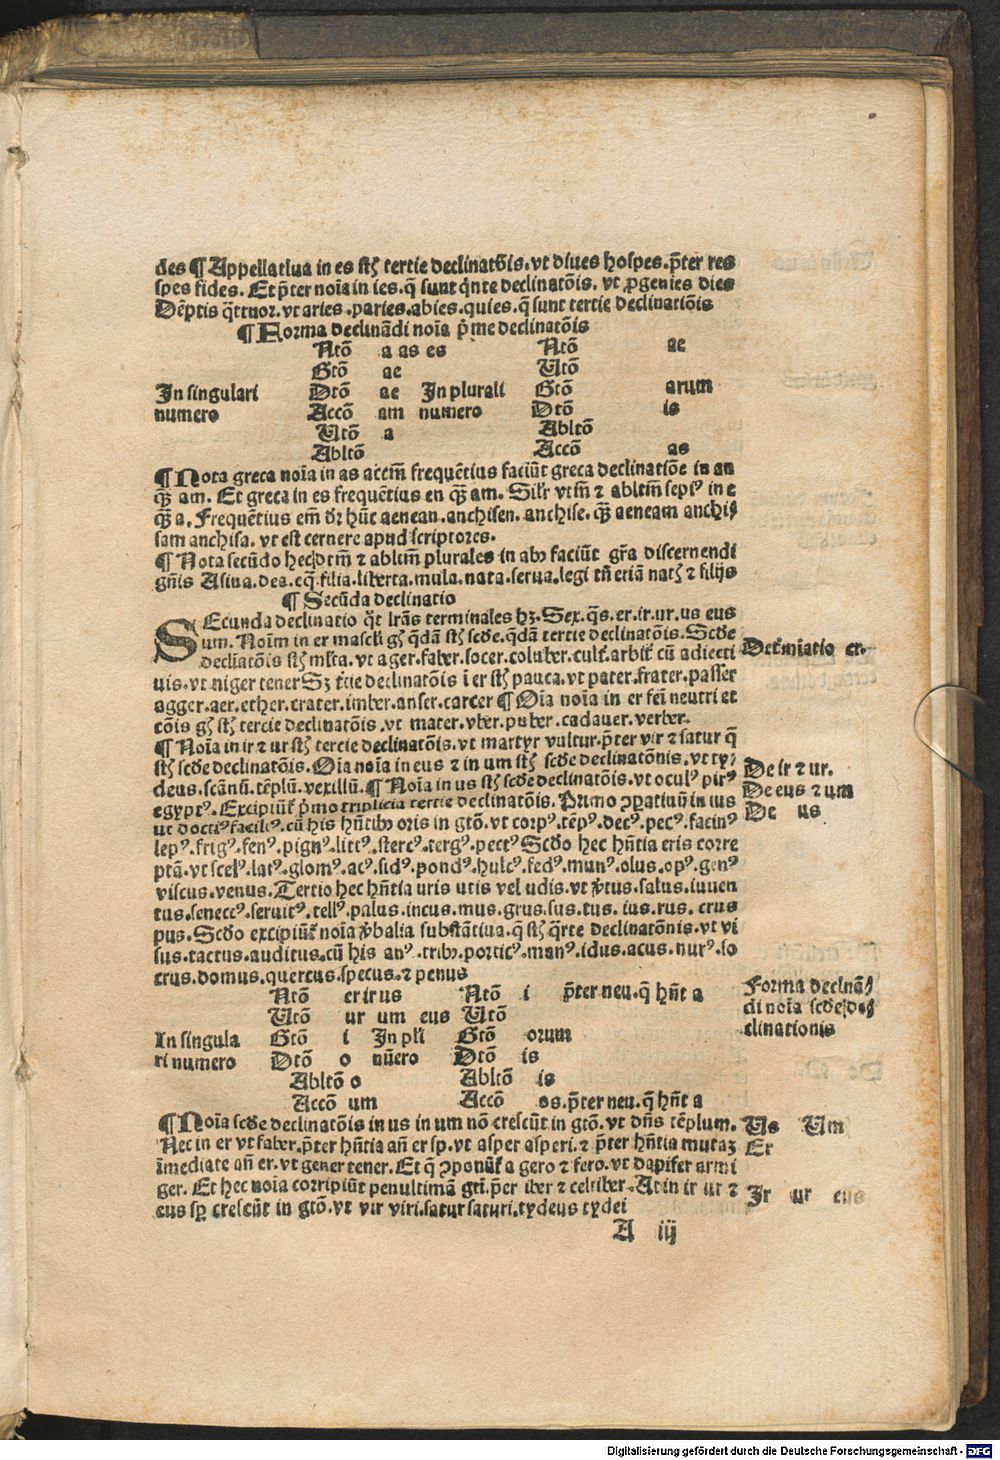 des ¶ Appellatiua in es sūt tertie declinatōis. vt diues hospes. p̄ter res
spes fides. Et p̄ter noīa in ies. q̄ sunt q̄nte declinatōis. vt ꝓgenies dies
Dēptis q̄ttuor. vt aries. paries. abies. quies. q̄ sunt tertie declinatiōis
¶ Forma declinādi noīa p̄me declinatōis
Ntō a as es Ntō ae
Gtō ae Vtō
In singulari Dtō ae In plurali Gtō arum
numero Accō am numero Dtō is
Vtō a Abltō
Abltō Accō as
¶ Nota greca noīa in as accm̄ frequētius faciūt greca declinatiōe in an
q̄ꝫ am. Et greca in es frequētius en q̄ꝫ am. Silr vtm̄ ⁊ abltm̄ sepiꝰ in e
q̄ꝫ a. Frequētius em̄ dr hūc aenean. anchisen. anchise. q̄ꝫ aeneam anchi⸗
sam anchisa. vt est cernere apud scriptores.
¶ Nota secūdo hec dtm̄ ⁊ abltm̄ plurales in abꝰ faciūt gr̄a discernendi
gn̄is Asina. dea. eq̄. filia. liberta. mula. nata. serua. legi tn̄ etiā natis ⁊ filijs
¶ Secūda declinatio
SEcunda declinatio q̄t lr̄as terminales hꝫ. Sex. q̄s. er. ir. ur. us eus
um. Noīm in er mascl'i gn̄is q̄dā sūt scd̄e. q̄dā tertie declinatōis. Scd̄e
declīatōis sūt ml'ta. vt ager. faber. socer. coluber. cult̄. arbit̄ cū adiecti
uis. vt niger tener Sꝫ t̄tie declinatōis ī er sūt pauca. vt pater. frater. passer
agger. aer. ether. crater. imber. anser. carcer ¶ Oīa noīa in er fei neutri et
cōis gn̄is sūt tercie declinatōis. vt mater. vber. puber. cadauer. verber.
¶ Noīa in ir ⁊ ur sūt tercie declinatōis. vt martyr vultur. p̄ter vir ⁊ satur q̄
sūt scd̄e declinatōis. Oīa noīa in eus ⁊ in um sūt scd̄e declinatōnis. vt ty⸗
deus. scānū. tēplū. vexillū. ¶ Noīa in us sūt scd̄e declinatōis. vt oculꝰ pirꝰ
egyptꝰ. Excipiūt̄ p̄mo triplicia tertie declinatōis. Primo ꝯpatiuū in ius
ut doctiꝰ faciliꝰ. cū his hn̄tibꝰ oris in gtō. vt corpꝰ. tēpꝰ. decꝰ. pecꝰ. facinꝰ
lepꝰ. frigꝰ. fenꝰ. pignꝰ. littꝰ. stercꝰ. tergꝰ. pectꝰ Scd̄o hec hn̄tia eris corre
ptā. vt scelꝰ. latꝰ. glomꝰ. acꝰ. sidꝰ. pondꝰ. hulcꝰ. fedꝰ. munꝰ. olus. opꝰ. genꝰ
viscus. venus. Tertio hec hn̄tia uris utis vel udis. vt v̄tus. salus. iuuen
tus. senectꝰ. seruitꝰ. tellꝰ. palus. incus. mus. grus. sus. tus. ius. rus. crus
pus. Scd̄o excipiūt̄ noīa v̄balia substātiua. q̄ sūt q̄rte declinatōnis. vt vi
sus. tactus. auditus. cū his anꝰ. tribꝰ. porticꝰ. manꝰ. idus. acus. nurꝰ. so
crus. domus. quercus. specus. ⁊ penus
Ntō er ir us Ntō i p̄ter neu. q̄ hn̄t a
Vtō ur um eus Vtō
In singula Gtō i In pl'i Gtō orum
ri numero Dtō o nūero Dtō is
Abltō o Abltō is
Accō um Accō os. p̄ter neu. q̄ hn̄t a
¶ Noīa scd̄e declinatōis in us in um nō crescūt in gtō. vt dn̄s tēplum.
Nec in er vt faber. p̄ter hn̄tia an̄ er sp. vt asper asperi. ⁊ p̄ter hn̄tia mutaꝫ
īmediate an̄ er. vt gener tener. Et q̄ ꝯponūt̄ a gero ⁊ fero. vt dapifer armi
ger. Et hec noīa corripiūt penultimā gti. p̄ter iber ⁊ celtiber. At in ir ur ⁊
eus sp̄ crescūt in gtō. vt vir viri. satur saturi. tydeus tydei
A iij
Det̄miatio er.
De ir ⁊ ur.
De eus ⁊ um
De us
Forma declnā⸗
di noīa scd̄e de⸗
clinationis
Us Um
Er
Ir ur eus
Digitalisierung gefördert durch die Deutsche Forschungsgemeinschaft - DFG